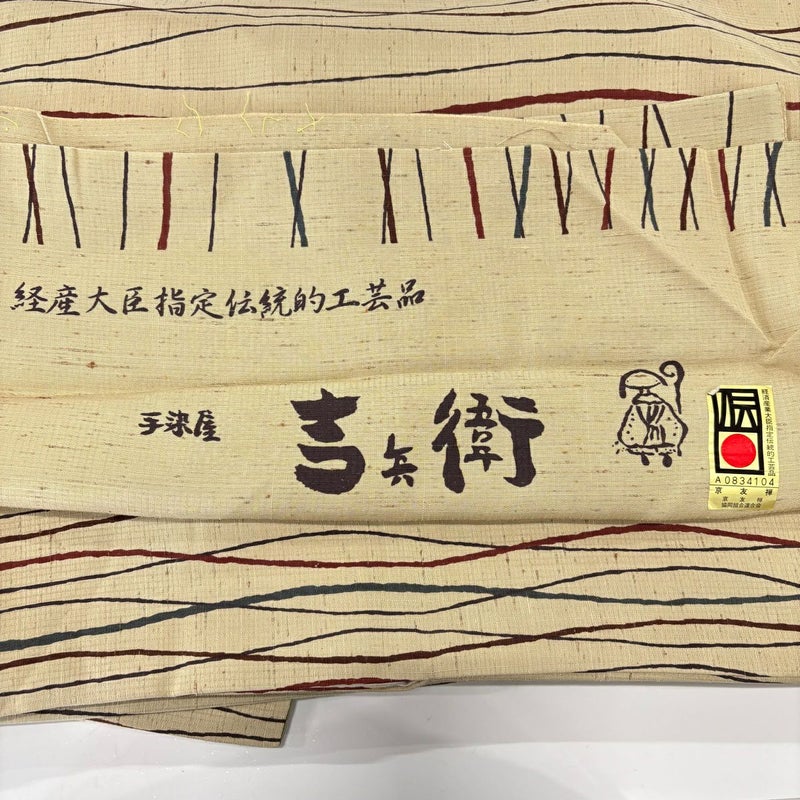 経産大臣指定伝統的工芸品
手染屋
吉兵衛
伝
経済産業大臣指定伝統的工芸品
A0834104
京友禅
京友禅
協同組合連合会